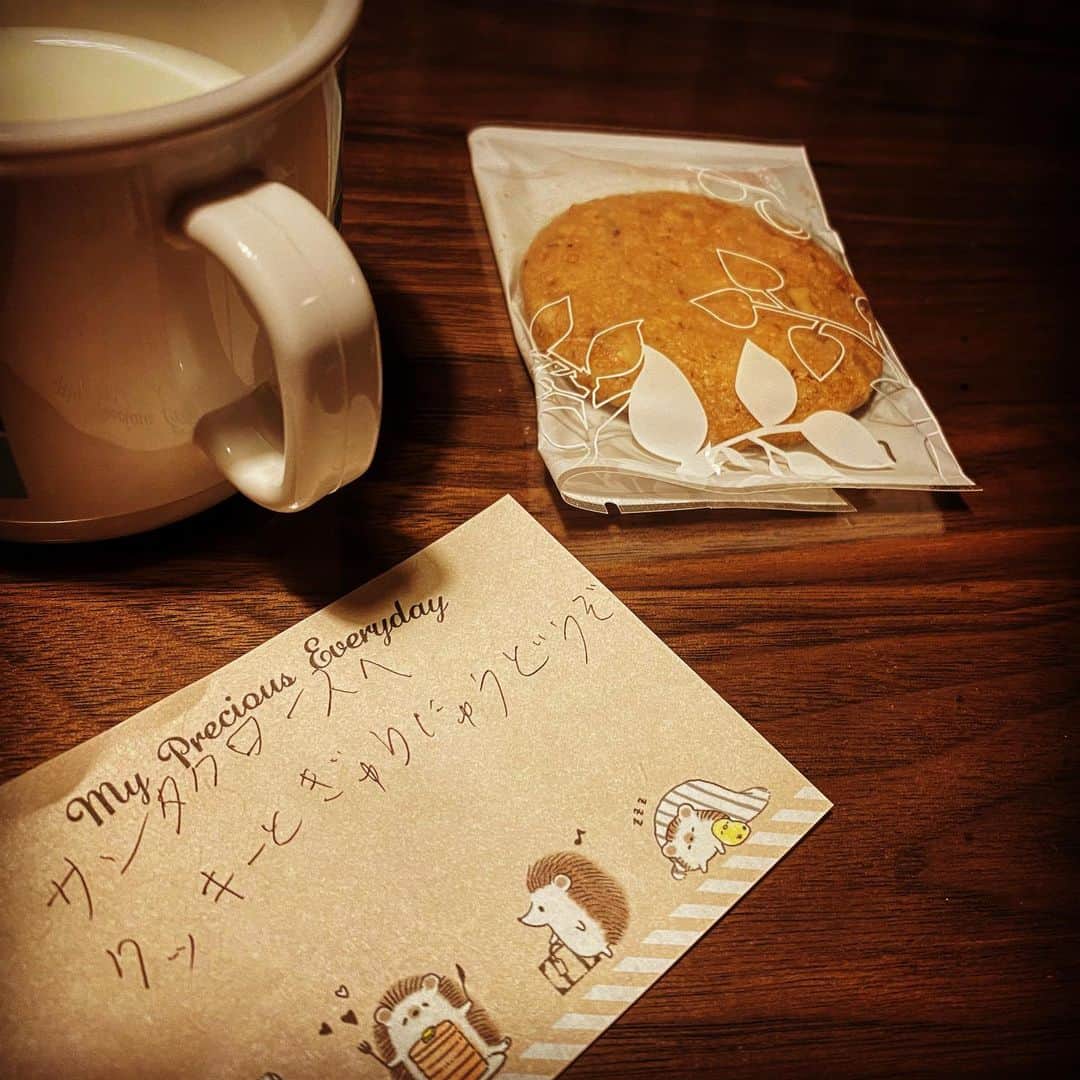 My Precious Everyday
サンタクロースへ
クッキーとぎゅうにゅうどうぞ
zzz